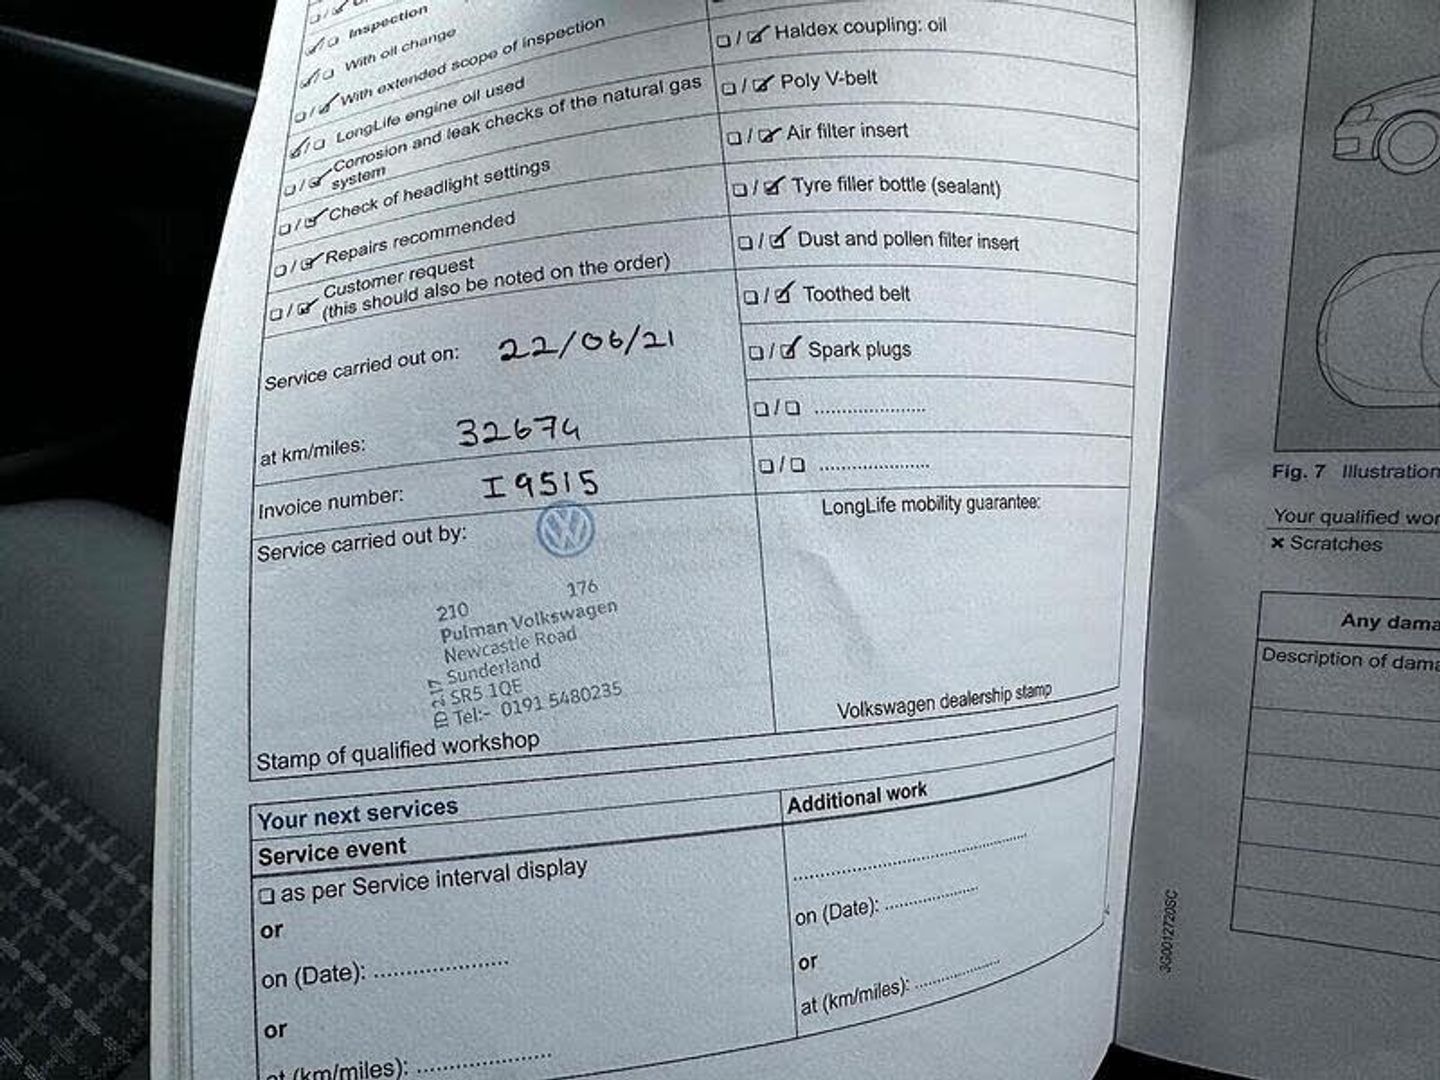 Inspection
With oil change
With extended scope of inspection
LongLife engine oil used
Corrosion and leak checks of the natural gas
system
Check of headlight settings
Repairs recommended
Customer request
(this should also be noted on the order)
Service carried out on: 22/06/21
at km/miles: 32674
Invoice number: I9515
Service carried out by:
210 176
Pulman Volkswagen
Newcastle Road
Sunderland
SR5 1QE
Tel:- 0191 5480235
Stamp of qualified workshop
Haldex coupling: oil
Poly V-belt
Air filter insert
Tyre filler bottle (sealant)
Dust and pollen filter insert
Toothed belt
Spark plugs
LongLife mobility guarantee:
Volkswagen dealership stamp
Your next services
Service event
as per Service interval display
or
on (Date):
or
at (km/miles):
Additional work
on (Date):
or
at (km/miles):
3G0012720SC
Fig. 7 Illustration
Your qualified wor
× Scratches
Any dama
Description of dama